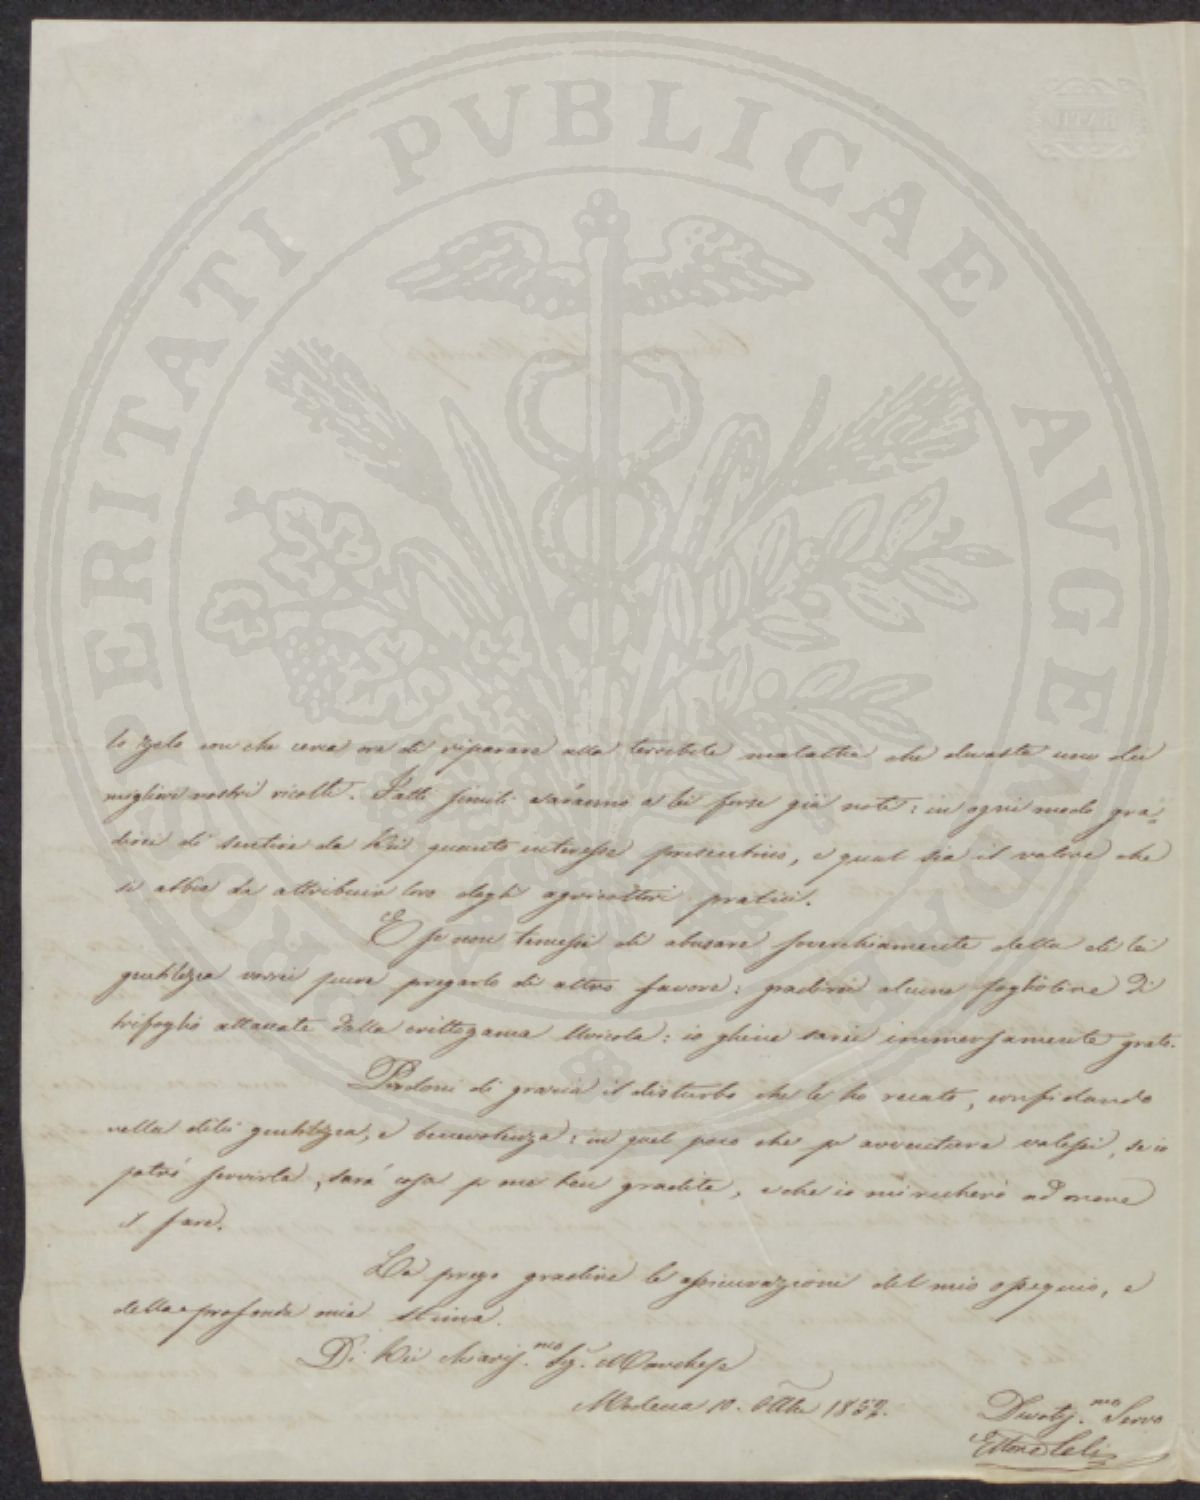 PROSPERITATI PVBLICAE AVGENDAE
BATH
lo zelo con che cerca ora di riparare alla terribile malattia che devasta uno dei
migliori nostri ricolti. Fatti simili saranno a lei forse già noti: in ogni modo gra=
direi di sentire da Lei quanto interesse presentino, e qual sia il valore che
si abbia da attribuir loro dagli agricoltori pratici.
E se non temessi di abusare soverchiamente della di lei
gentilezza vorrei pure pregarlo di altro favore: gradirei alcune foglioline di
trifoglio attaccate dalla crittogama Uvicola: io gliene sarei immensamente grato.
Perdoni di grazia il disturbo che le ho recato, confidando
nella di lei gentilezza, e benevolenza: in quel poco che p avventura valessi, se io
potrò servirla, sarà cosa p me ben gradita, e che io mi recherò ad onore
il fare.
La prego gradire le assicurazioni del mio ossequio, e
della profonda mia stima.
Di Lei chiaris.mo Sig. Marchese
Modena 10. Ottbe 185
Devotis.mo Servo
Ettore Celi